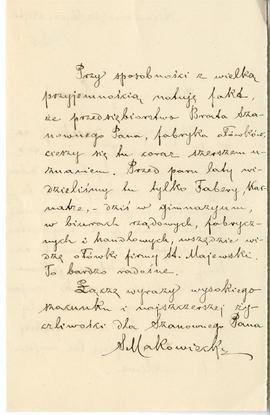 Przy sposobności z wielką
przyjemnością notuję fakt,
że przedsiębiorstwo Brata Sza-
nownego Pana, fabryka ołówków,
cieszy się tu coraz szerszem u-
znaniem. Przed paru laty wi-
dzieliśmy tu tylko Fabery Har-
muty, - dziś w gimnazyum,
w biurach rządowych, fabrycz-
nych i handlowych, wszędzie wi-
dzę ołówki firmy St. Majewski.
To bardzo radośne.
Łączę wyrazy wysokiego
szacunku i najszczerszej ży-
czliwości dla Szanownego Pana
SMakowiecki